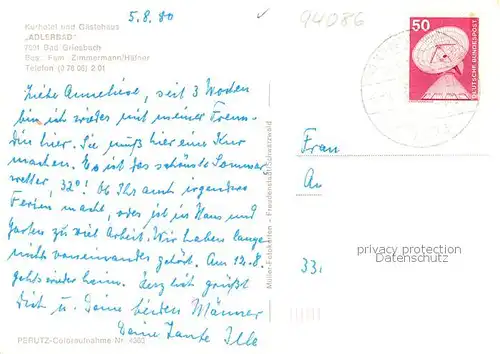 5.8.80
94086
Kurhotel und Gästehaus
„ADLERBAD"
7601 Bad Griesbach
Bes. Fam. Zimmermann/Hüfner
Telefon (0 78 06) 2 01
50
DEUTSCHE BUNDESPOST
Liebe Anneliese, seit 3 Wochen
bin ich wieder mit meiner Freun-
din hier. Sie muß hier eine Kur
machen. Es ist das schönste Sommer
wetter, 32°! Ob Ihr auch irgendwo
Ferien macht, oder ist in Haus und
Garten zu viel Arbeit. Wir haben lange
nichts voneinander gehört. Am 12.8.
geht's wieder heim. Herzlich grüßt
Dich u. Deine beiden Männer
Deine Tante Ille
Müller-Fotokarten - Freudenstadt/Schwarzwald
Frau
An
privacy protection
Datenschutz
33
PERUTZ-Coloraufnahme Nr. 4363